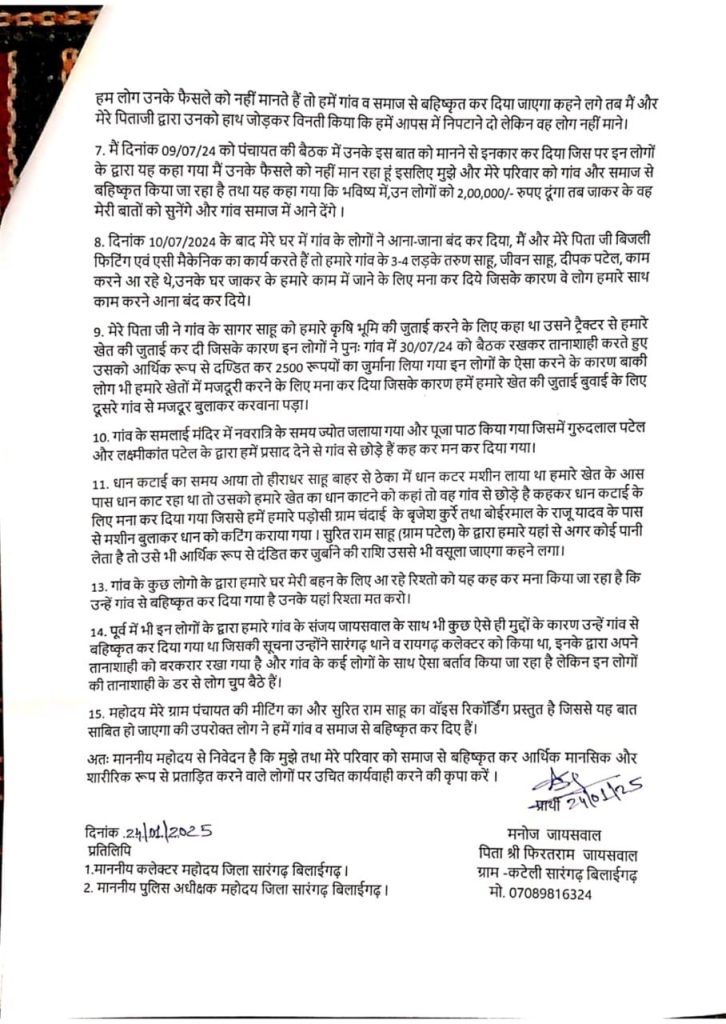 हम लोग उनके फैसले को नहीं मानते हैं तो हमें गांव व समाज से बहिष्कृत कर दिया जाएगा कहने लगे तब मैं और
मेरे पिताजी द्वारा उनको हाथ जोड़कर विनती किया कि हमें आपस में निपटाने दो लेकिन वह लोग नहीं माने।
7. मैं दिनांक 09/07/24 को पंचायत की बैठक में उनके इस बात को मानने से इनकार कर दिया जिस पर इन लोगों
के द्वारा यह कहा गया मैं उनके फैसले को नहीं मान रहा हूं इसलिए मुझे और मेरे परिवार को गांव और समाज से
बहिष्कृत किया जा रहा है तथा यह कहा गया कि भविष्य में,उन लोगों को 2,00,000/- रुपए दूंगा तब जाकर के वह
मेरी बातों को सुनेंगे और गांव समाज में आने देंगे ।
8. दिनांक 10/07/2024 के बाद मेरे घर में गांव के लोगों ने आना-जाना बंद कर दिया, मैं और मेरे पिता जी बिजली
फिटिंग एवं एसी मैकेनिक का कार्य करते हैं तो हमारे गांव के 3-4 लड़के तरुण साहू, जीवन साहू, दीपक पटेल, काम
करने आ रहे थे,उनके घर जाकर के हमारे काम में जाने के लिए मना कर दिये जिसके कारण वे लोग हमारे साथ
काम करने आना बंद कर दिये।
9. मेरे पिता जी ने गांव के सागर साहू को हमारे कृषि भूमि की जुताई करने के लिए कहा था उसने ट्रैक्टर से हमारे
खेत की जुताई कर दी जिसके कारण इन लोगों ने पुनः गांव में 30/07/24 को बैठक रखकर तानाशाही करते हुए
उसको आर्थिक रूप से दण्डित कर 2500 रूपयों का जुर्माना लिया गया इन लोगों के ऐसा करने के कारण बाकी
लोग भी हमारे खेतों में मजदूरी करने के लिए मना कर दिया जिसके कारण हमें हमारे खेत की जुताई बुवाई के लिए
दूसरे गांव से मजदूर बुलाकर करवाना पड़ा।
10. गांव के समलाई मंदिर में नवरात्रि के समय ज्योत जलाया गया और पूजा पाठ किया गया जिसमें गुरुदलाल पटेल
और लक्ष्मीकांत पटेल के द्वारा हमें प्रसाद देने से गांव से छोड़े हैं कह कर मन कर दिया गया।
11. धान कटाई का समय आया तो हीराधर साहू बाहर से ठेका में धान कटर मशीन लाया था हमारे खेत के आस
पास धान काट रहा था तो उसको हमारे खेत का धान काटने को कहां तो वह गांव से छोड़े है कहकर धान कटाई के
लिए मना कर दिया गया जिससे हमें हमारे पड़ोसी ग्राम चंदाई के बृजेश कुर्रे तथा बोईरमाल के राजू यादव के पास
से मशीन बुलाकर धान को कटिंग कराया गया । सुरित राम साहू (ग्राम पटेल) के द्वारा हमारे यहां से अगर कोई पानी
लेता है तो उसे भी आर्थिक रूप से दंडित कर जुर्बाने की राशि उससे भी वसूला जाएगा कहने लगा।
13. गांव के कुछ लोगो के द्वारा हमारे घर मेरी बहन के लिए आ रहे रिश्तो को यह कह कर मना किया जा रहा है कि
उन्हें गांव से बहिष्कृत कर दिया गया है उनके यहां रिश्ता मत करो।
14. पूर्व में भी इन लोगों के द्वारा हमारे गांव के संजय जायसवाल के साथ भी कुछ ऐसे ही मुद्दों के कारण उन्हें गांव से
बहिष्कृत कर दिया गया था जिसकी सूचना उन्होंने सारंगढ़ थाने व रायगढ़ कलेक्टर को किया था, इनके द्वारा अपने
तानाशाही को बरकरार रखा गया है और गांव के कई लोगों के साथ ऐसा बर्ताव किया जा रहा है लेकिन इन लोगों
की तानाशाही के डर से लोग चुप बैठे हैं।
15. महोदय मेरे ग्राम पंचायत की मीटिंग का और सुरित राम साहू का वॉइस रिकॉर्डिंग प्रस्तुत है जिससे यह बात
साबित हो जाएगा की उपरोक्त लोग ने हमें गांव व समाज से बहिष्कृत कर दिए हैं।
अतः माननीय महोदय से निवेदन है कि मुझे तथा मेरे परिवार को समाज से बहिष्कृत कर आर्थिक मानसिक और
शारीरिक रूप से प्रताड़ित करने वाले लोगों पर उचित कार्यवाही करने की कृपा करें ।
प्रार्थी 24/01/25
दिनांक .24/01/2025
प्रतिलिपि
1.माननीय कलेक्टर महोदय जिला सारंगढ़ बिलाईगढ़ ।
2. माननीय पुलिस अधीक्षक महोदय जिला सारंगढ़ बिलाईगढ़ ।
मनोज जायसवाल
पिता श्री फिरतराम जायसवाल
ग्राम -कटेली सारंगढ़ बिलाईगढ़
मो. 07089816324